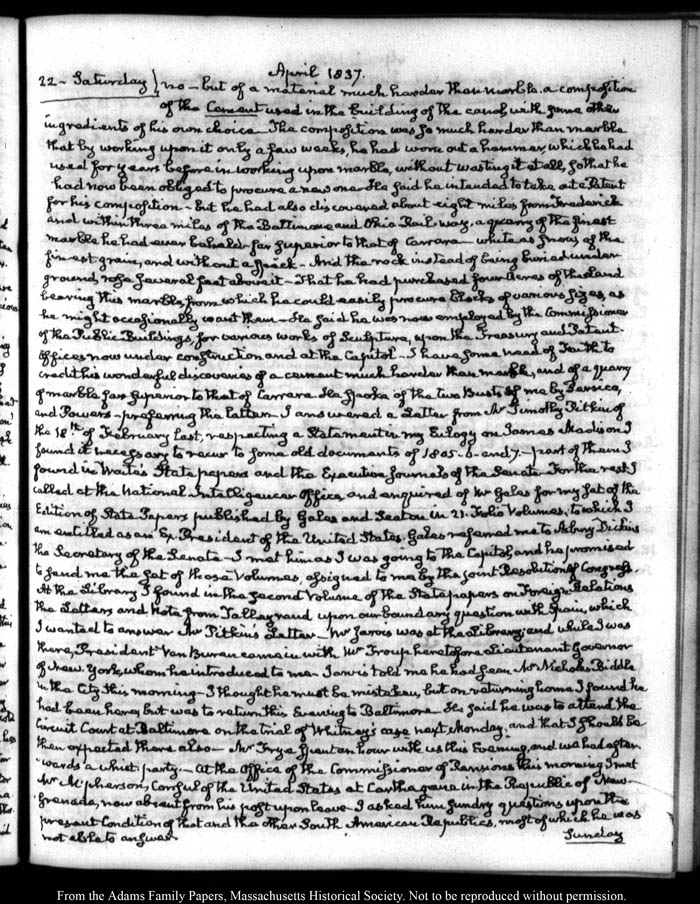 April 1837.
22 - Saturday } no - but of a material much harder than marble. a composition
of the Cement used in the building of the canal, with some other
ingredients of his own choice. The composition was so much harder than marble
that by working upon it only a few weeks, he had worn out a hammer, which he had
used for years before in working upon marble, without wasting it at all, so that he
had now been obliged to procure a new one. He said he intended to take out a Patent
for his composition - but he had also discovered about eight miles from Frederick
and within three miles of the Baltimore and Ohio Rail way, a quarry of the finest
marble he had ever beheld - far superior to that of Carrara - white as snow, of the
finest grain, and without a speck - And the rock instead of being buried under
ground, rose several feet above it - That he had purchased four Acres of the Land
bearing this marble, from which he could easily procure blocks of various sizes, as
he might occasionally want them - He said he was now employed by the Commissioner
of the Public Buildings, for various works of Sculpture, upon the Treasury and Patent-
offices now under construction and at the Capitol - I have some need of Faith to
credit his wonderful discoveries of a cement much harder than marble, and of a quarry
of marble far superior to that of Carrara. He spoke of the two Busts of me by Persico,
and Powers - preferring the latter. I answered a Letter from Mr Timothy Pitkin of
the 18th of February last, respecting a Statement in my Eulogy on James Madison. I
found it necessary to recur to some old documents of 1805. 6. and 7. - part of them I
found in Waite's State papers and the Executive Journals of the Senate. For the rest I
called at the National Intelligencer Office and enquired of Mr Gales for my set of the
Edition of State Papers published by Gales and Seaton in 21. Folio Volumes, to which I
am entitled as an Ex-President of the United States. Gales referred me to Asbury Dickins
the Secretary of the Senate - I met him as I was going to the Capitol, and he promised
to send me the set of those Volumes, assigned to me by the joint Resolution of Congress.
At the Library I found in the second Volume of the State papers on Foreign Relations
the Letters and Note from Talleyrand upon our boundary question with Spain, which
I wanted to answer Mr Pitkin's Letter. Mr Jarvis was at the Library; and while I was
there, President Van Buren came in with Mr Troup heretofore Lieutenant Governor
of New York, whom he introduced to me. Jarvis told me he had seen Mr Nicholas Biddle
in the City this morning - I thought he must be mistaken, but on returning home I found he
had been here, but was to return this Evening to Baltimore. He said he was to attend the
Circuit Court at Baltimore on the trial of Whitney's case next Monday, and that I should be
then expected there also - Mr Frye spent an hour with us this Evening, and we had after-
wards a whist party. - At the Office of the Commissioner of Pensions this morning I met
Mr McPherson, Consul of the United States at Carthagena in the Republic of New-
Grenada, now absent from his post upon leave. I asked him sundry questions upon the
present Condition of that and the other South American Republics, most of which he was
not able to answer.
Sunday
From the Adams Family Papers, Massachusetts Historical Society. Not to be reproduced without permission.